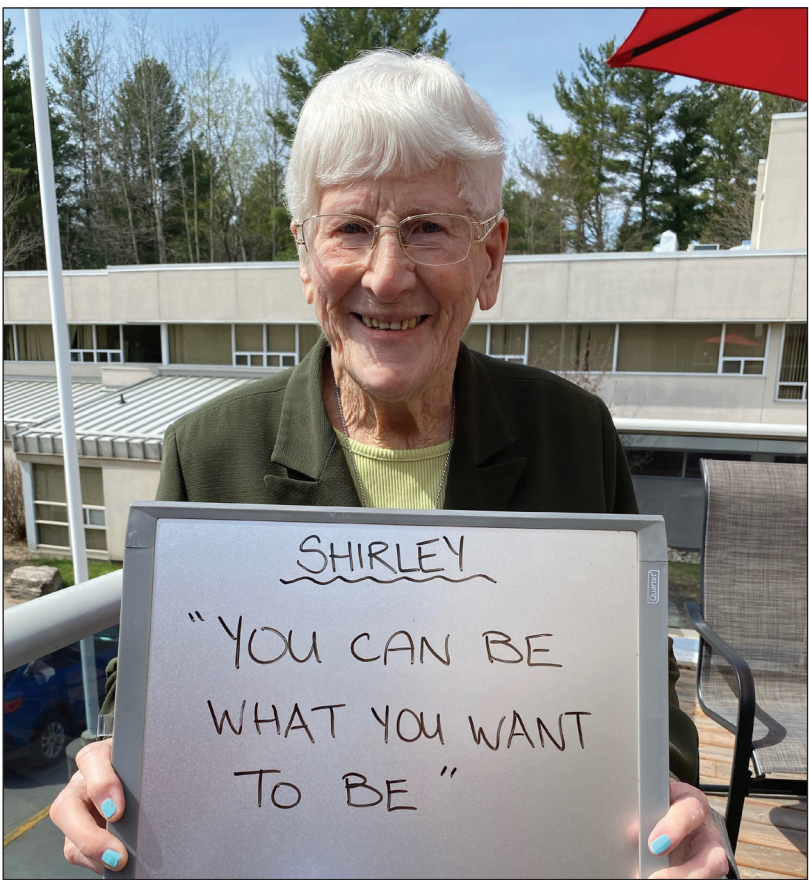 SHIRLEY
"YOU CAN BE
WHAT YOU WANT
TO BE"
Quartet